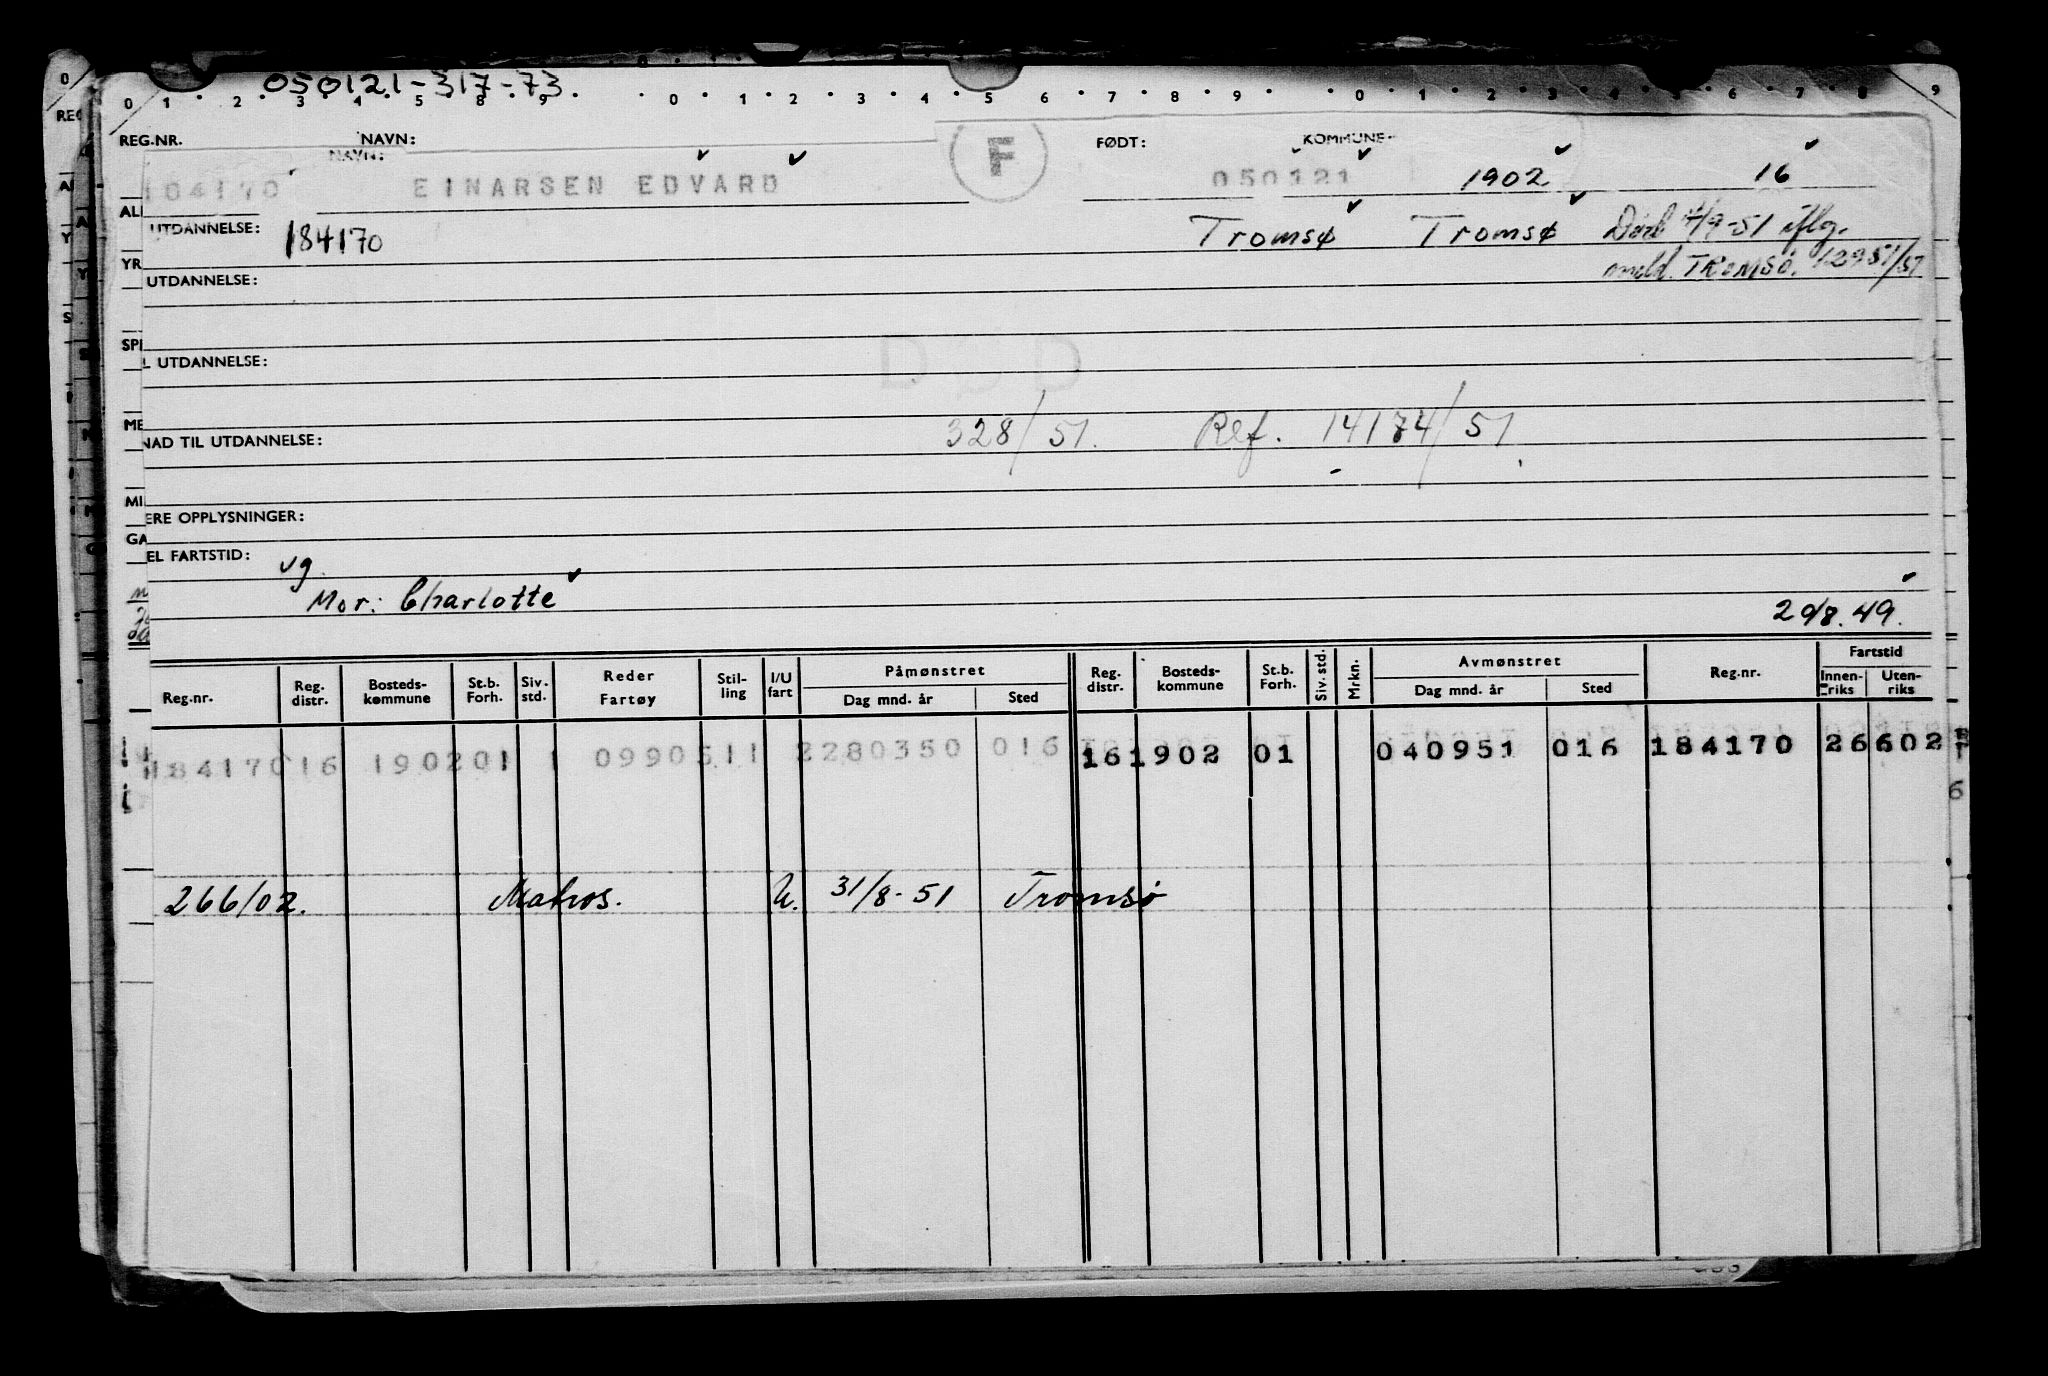 050121-317-73
0 1 2 3 4 5 8 9 0 1 2 3 4 5 6 7 8 9 0 1 2 3 4 5 6 7 8 9
REG.NR. NAVN: F FØDT: KOMMUNE
NAVN:
104170 EINARSEN EDVARD 050121 1902 16
UTDANNELSE: 184170 Tromsø Tromsø Død 4/9-51 iflg.
UTDANNELSE: meld. TROMSØ. 12951/51
L UTDANNELSE: DØD
NAD TIL UTDANNELSE: 328/51. Ref. 14174/51
ERE OPPLYSNINGER:
EL FARTSTID: vg.
Mor: Charlotte
20/8.49.
Reg.nr. Reg. distr. Bosteds-kommune St.b. Forh. Siv. std. Reder Fartøy Stil-ling I/U fart Påmønstret Dag mnd. år Sted Reg. distr. Bosteds-kommune St.b. Forh. Siv. std. Mrkn. Avmønstret Dag mnd. år Sted Reg.nr. Fartstid Innen-riks Uten-riks
184170 16 1902 01 1 0990511 2 280350 016 16 1902 01 040951 016 184170 26 602
266/02. Matros. U. 31/8-51 Tromsø